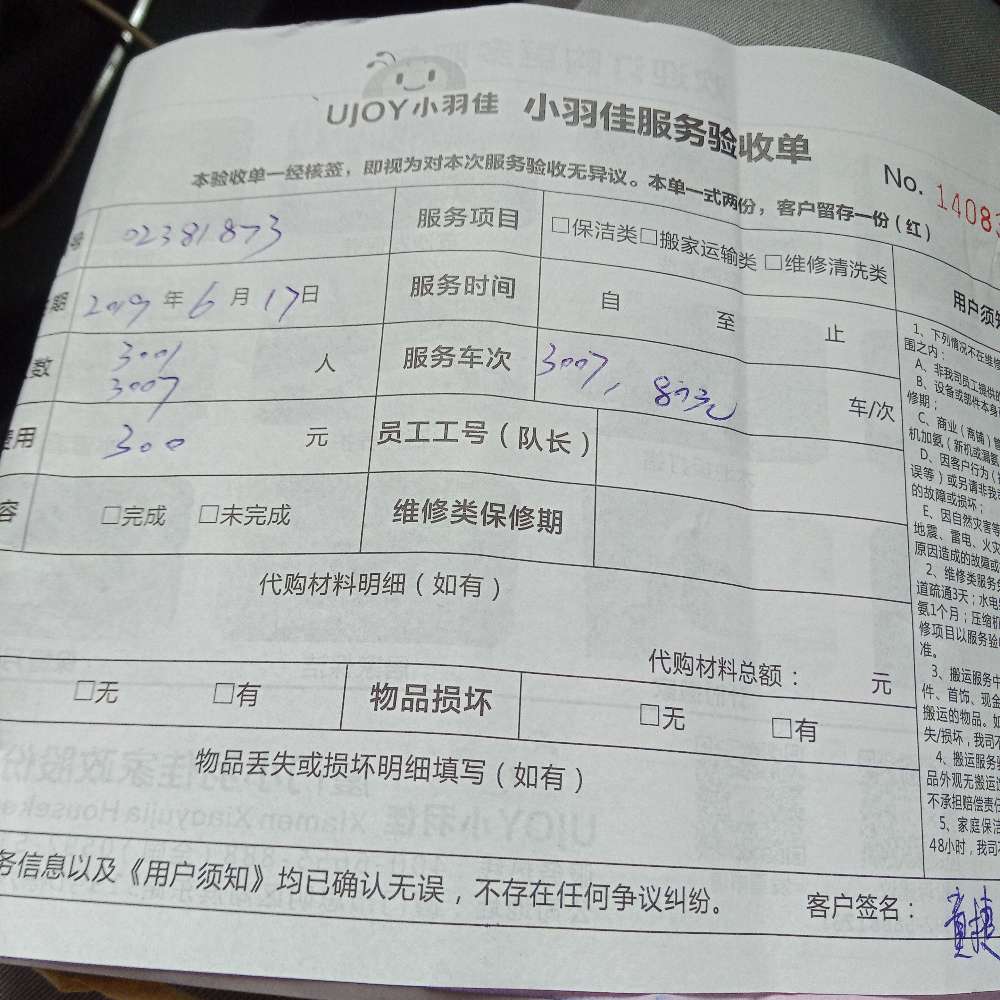 UJOY小羽佳 小羽佳服务验收单
No. 1408
本验收单一经核签，即视为对本次服务验收无异议。本单一式两份，客户留存一份（红）
号 02381873 服务项目 □保洁类□搬家运输类 □维修清洗类
期 2019 年 6 月 17 日 服务时间 自 至 止
数 3001 3007 人 服务车次 3007， 车/次
费用 300 元 员工工号（队长）
容 □完成 □未完成 维修类保修期
代购材料明细（如有）
代购材料总额： 元
□无 □有 物品损坏 □无 □有
物品丢失或损坏明细填写（如有）
务信息以及《用户须知》均已确认无误，不存在任何争议纠纷。 客户签名：
用户须知
1、下列情况不在维修
围之内：
A、非我司员工提供的
B、设备或部件本身
修期；
C、商业（商铺）管
机加氨（新机或漏氨
D、因客户行为（
误等）或另请非我
的故障或损坏；
E、因自然灾害等
地震、雷电、火灾
原因造成的故障或
2、维修类服务
道疏通3天；水电
氨1个月；压缩机
修项目以服务验收
准。
3、搬运服务中
件、首饰、现金
搬运的物品。如
失/损坏，我司不
4、搬运服务
品外观无搬运
不承担赔偿责任
5、家庭保洁
48小时，我司不